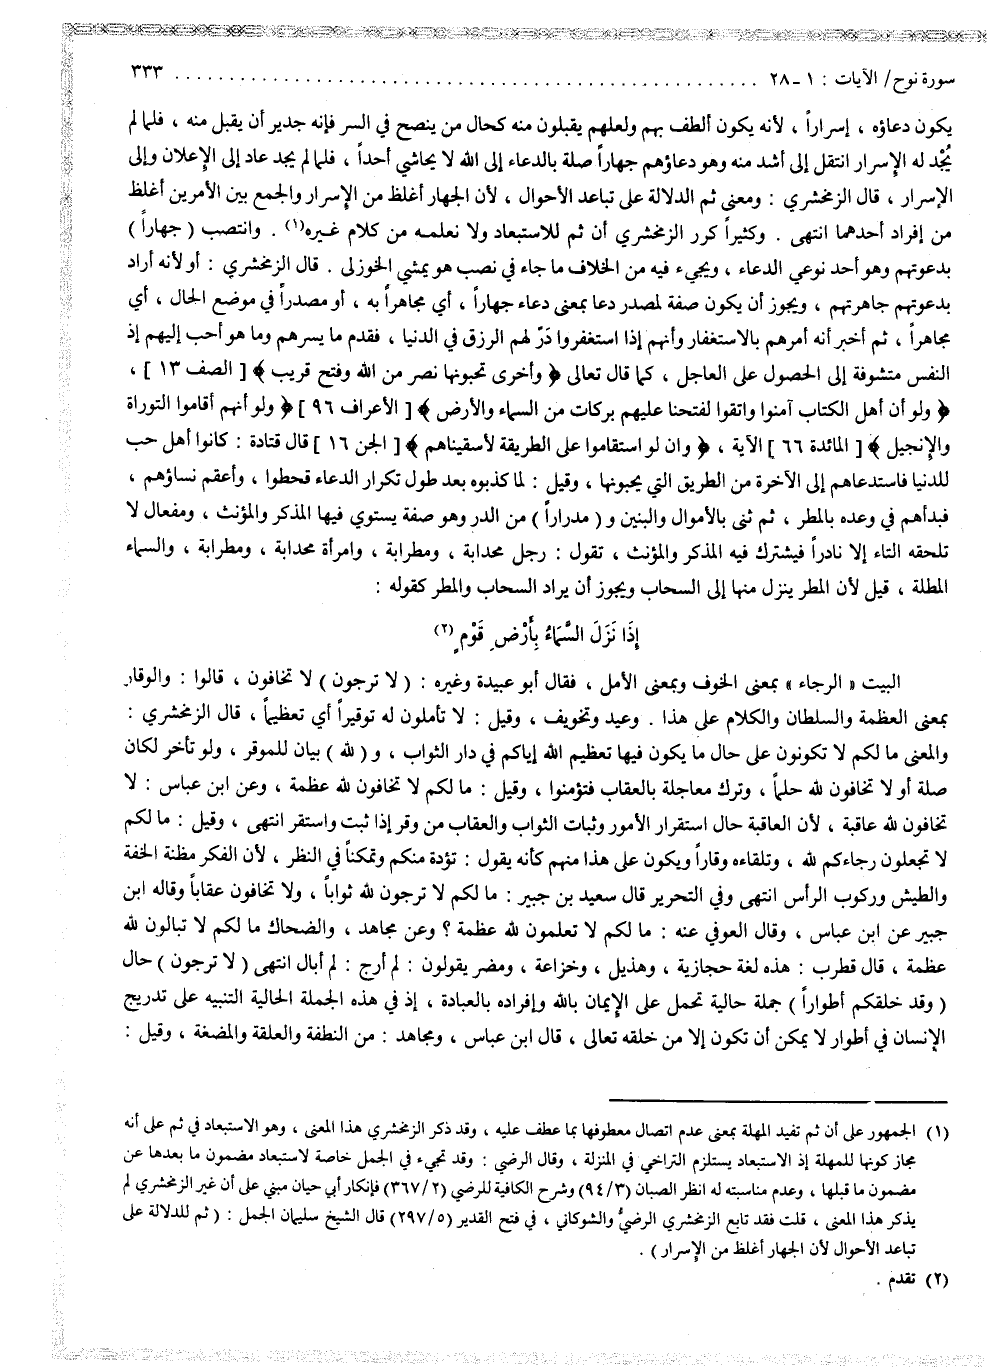 سورة نوح/ الآيات : ١ ـ ٢٨ . . . . . . . . . . . . . . . . . . . . . . . . . . . . . . . . . . . . . . . . . . . . ٣٣٣
يكون دعاؤه ، إسراراً ، لأنه يكون ألطف بهم ولعلهم يقبلون منه كحال من ينصح في السر فإنه جدير أن يقبل منه ، فلما لم
يُجْد له الإسرار انتقل إلى أشد منه وهو دعاؤهم جهاراً صلة بالدعاء إلى الله لا يحاشي أحداً ، فلما لم يجد عاد إلى الإعلان وإلى
الإسرار ، قال الزمخشري : ومعنى ثم الدلالة على تباعد الأحوال ، لأن الجهار أغلظ من الإسرار والجمع بين الأمرين أغلظ
من إفراد أحدهما انتهى . وكثيراً كرر الزمخشري أن ثم للاستبعاد ولا نعلمه من كلام غيره(١) . وانتصب ( جهاراً )
بدعوتهم وهو أحد نوعي الدعاء ، ويجيء فيه من الخلاف ما جاء في نصب هو يمشي الخوزلى . قال الزمخشري : أو لأنه أراد
بدعوتهم جاهرتهم ، ويجوز أن يكون صفة لمصدر دعا بمعنى دعاء جهاراً ، أي مجاهراً به ، أو مصدراً في موضع الحال ، أي
مجاهراً ، ثم أخبر أنه أمرهم بالاستغفار وأنهم إذا استغفروا دَرّ لهم الرزق في الدنيا ، فقدم ما يسرهم وما هو أحب إليهم إذ
النفس متشوفة إلى الحصول على العاجل ، كما قال تعالى ﴿ وأخرى تحبونها نصر من الله وفتح قريب ﴾ [ الصف ١٣ ] ،
﴿ ولو أن أهل الكتاب آمنوا واتقوا لفتحنا عليهم بركات من السماء والأرض ﴾ [ الأعراف ٩٦ ] ﴿ ولو أنهم أقاموا التوراة
والإنجيل ﴾ [ المائدة ٦٦ ] الآية ، ﴿ وان لو استقاموا على الطريقة لأسقيناهم ﴾ [ الجن ١٦ ] قال قتادة : كانوا أهل حب
للدنيا فاستدعاهم إلى الآخرة من الطريق التي يحبونها ، وقيل : لما كذبوه بعد طول تكرار الدعاء قحطوا ، وأعقم نساؤهم ،
فبدأهم في وعده بالمطر ، ثم ثنى بالأموال والبنين و ( مدراراً ) من الدر وهو صفة يستوي فيها المذكر والمؤنث ، ومفعال لا
تلحقه التاء إلا نادراً فيشترك فيه المذكر والمؤنث ، تقول : رجل محدابة ، ومطرابة ، وامرأة محدابة ، ومطرابة ، والسماء
المطلة ، قيل لأن المطر ينزل منها إلى السحاب ويجوز أن يراد السحاب والمطر كقوله :
إِذَا نَزَلَ السَّمَاءُ بِأَرْضِ قَوْمٍ (٢)
البيت « الرجاء » بمعنى الخوف وبمعنى الأمل ، فقال أبو عبيدة وغيره : ( لا ترجون ) لا تخافون ، قالوا : والوقار
بمعنى العظمة والسلطان والكلام على هذا . وعيد وتخويف ، وقيل : لا تأملون له توقيراً أي تعظيماً ، قال الزمخشري :
والمعنى ما لكم لا تكونون على حال ما يكون فيها تعظيم الله إياكم في دار الثواب ، و ( لله ) بيان للموقر ، ولو تأخر لكان
صلة أو لا تخافون لله حلماً ، وترك معاجلة بالعقاب فتؤمنوا ، وقيل : ما لكم لا تخافون لله عظمة ، وعن ابن عباس : لا
تخافون لله عاقبة ، لأن العاقبة حال استقرار الأمور وثبات الثواب والعقاب من وقر إذا ثبت واستقر انتهى ، وقيل : ما لكم
لا تجعلون رجاءكم لله ، وتلقاءه وقاراً ويكون على هذا منهم كأنه يقول : تؤدة منكم وتمكناً في النظر ، لأن الفكر مظنة الخفة
والطيش وركوب الرأس انتهى وفي التحرير قال سعيد بن جبير : ما لكم لا ترجون لله ثواباً ، ولا تخافون عقاباً وقاله ابن
جبير عن ابن عباس ، وقال العوفي عنه : ما لكم لا تعلمون لله عظمة ؟ وعن مجاهد ، والضحاك ما لكم لا تبالون لله
عظمة ، قال قطرب : هذه لغة حجازية ، وهذيل ، وخزاعة ، ومضر يقولون : لم أرج : لم أبال انتهى ( لا ترجون ) حال
( وقد خلقكم أطواراً ) جملة حالية تحمل على الإيمان بالله وإفراده بالعبادة ، إذ في هذه الجملة الحالية التنبيه على تدريج
الإنسان في أطوار لا يمكن أن تكون إلا من خلقه تعالى ، قال ابن عباس ، ومجاهد : من النطفة والعلقة والمضغة ، وقيل :
(١) الجمهور على أن ثم تفيد المهلة بمعنى عدم اتصال معطوفها بما عطف عليه ، وقد ذكر الزمخشري هذا المعنى ، وهو الاستبعاد في ثم على أنه
مجاز كونها للمهلة إذ الاستبعاد يستلزم التراخي في المنزلة ، وقال الرضي : وقد تجيء في الجمل خاصة لاستبعاد مضمون ما بعدها عن
مضمون ما قبلها ، وعدم مناسبته له انظر الصبان (٩٤/٣) وشرح الكافية للرضي (٣٦٧/٢) فإنكار أبي حيان مبني على أن غير الزمخشري لم
يذكر هذا المعنى ، قلت فقد تابع الزمخشري الرضيُّ والشوكاني ، في فتح القدير (٢٩٧/٥) قال الشيخ سليمان الجمل : ( ثم للدلالة على
تباعد الأحوال لأن الجهار أغلظ من الإسرار ) .
(٢) تقدم .